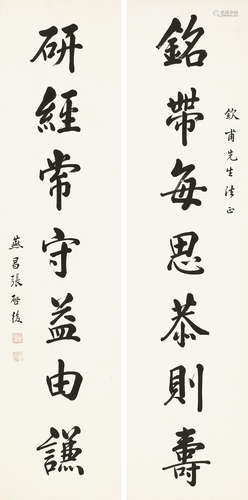 欽甫先生法正
銘帶每思恭則壽
研經常守益由謙
燕昌張啓後